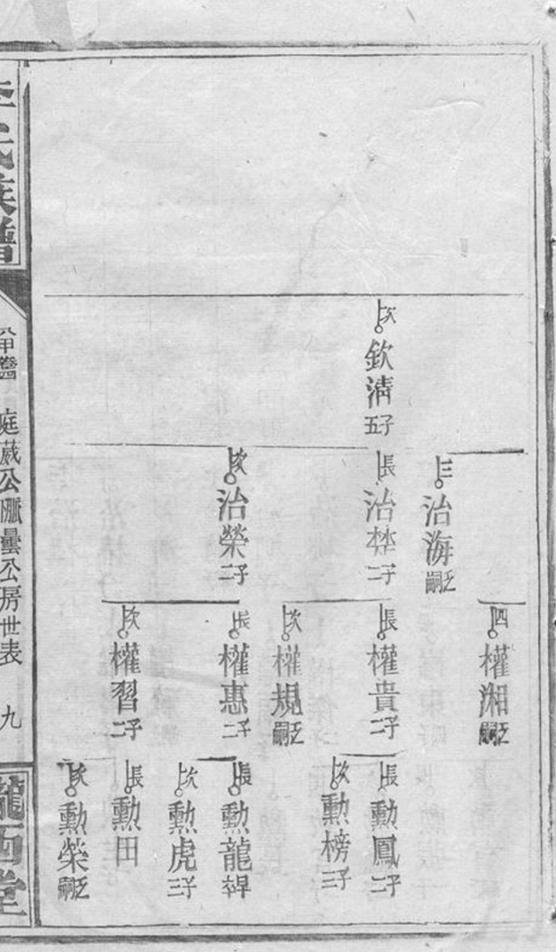 次 欽清 五子
三 治海 乏嗣
長 治埜 二子
次 治榮 二子
四 權湘 乏嗣
長 權貴 二子
次 權規 乏嗣
長 權惠 二子
次 權習 二子
長 勳鳳 二子
次 勳榜 三子
長 勳龍
次 勳虎 三子
長 勳田
次 勳榮 乏嗣
李氏族譜
庭葳公脈曇公房世表
九
隴西堂